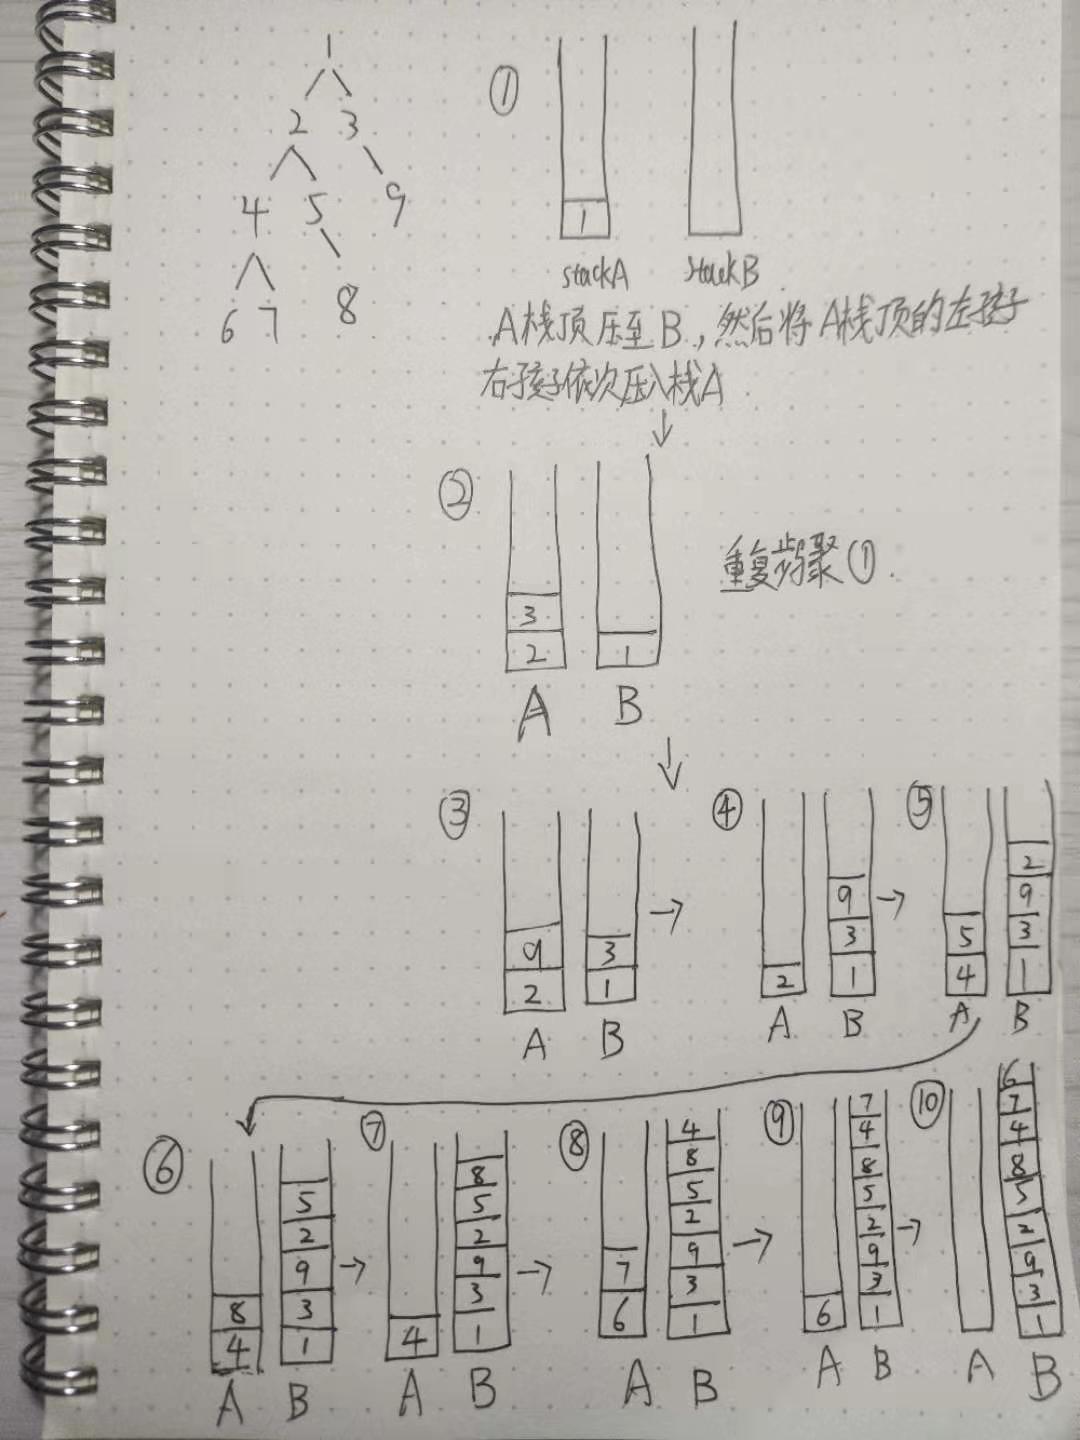 1
2 3
4 5 9
6 7 8
①
1
stackA stackB
A栈顶压至B,然后将A栈顶的左孩子
右孩子依次压入栈A
②
3
2 1
A B
重复步骤①.
③
9 3
2 1
A B
④
9
3
2 1
A B
⑤
2
9
5 3
4 1
A B
⑥
5
2
9
8 3
4 1
A B
⑦
8
5
2
9
3
4 1
A B
⑧
4
8
5
2
9
7 3
6 1
A B
⑨
7
4
8
5
2
9
3
6 1
A B
⑩
6
7
4
8
5
2
9
3
1
A B